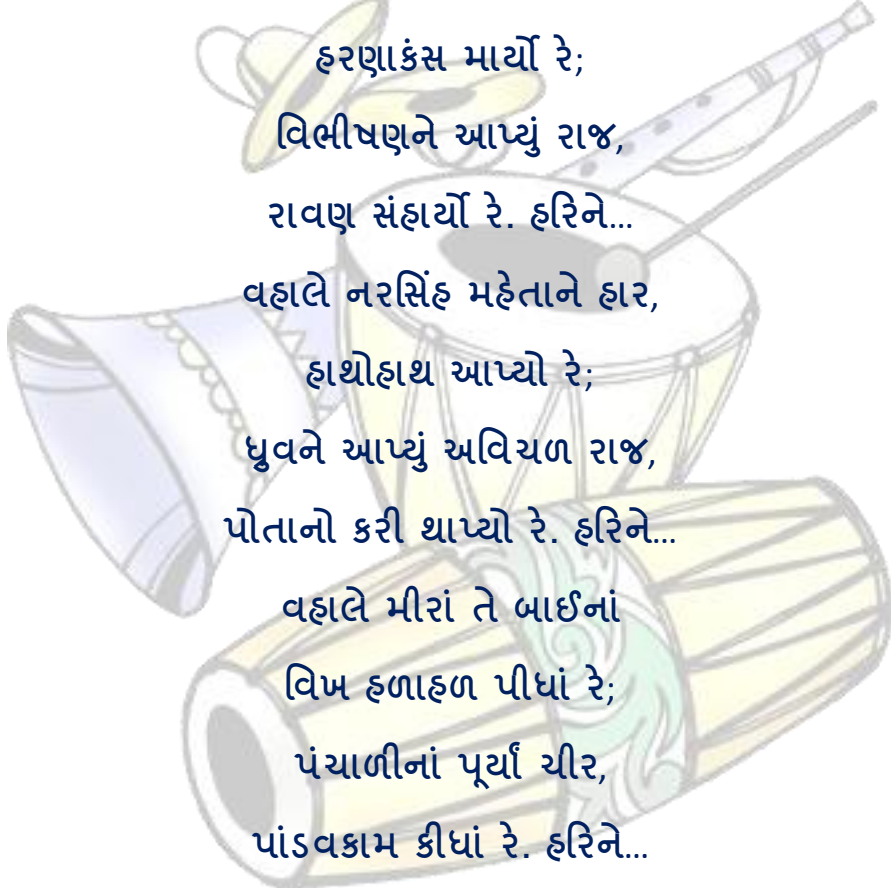 હરણાકંસ માર્યો રે;
વિભીષણને આપ્યું રાજ,
રાવણ સંહાર્યો રે. હરિને...
વહાલે નરસિંહ મહેતાને હાર,
હાથોહાથ આપ્યો રે;
ધ્રુવને આપ્યું અવિચળ રાજ,
પોતાનો કરી થાપ્યો રે. હરિને...
વહાલે મીરાં તે બાઈનાં
વિખ હળાહળ પીધાં રે;
પંચાળીનાં પૂર્યાં ચીર,
પાંડવકામ કીધાં રે. હરિને...